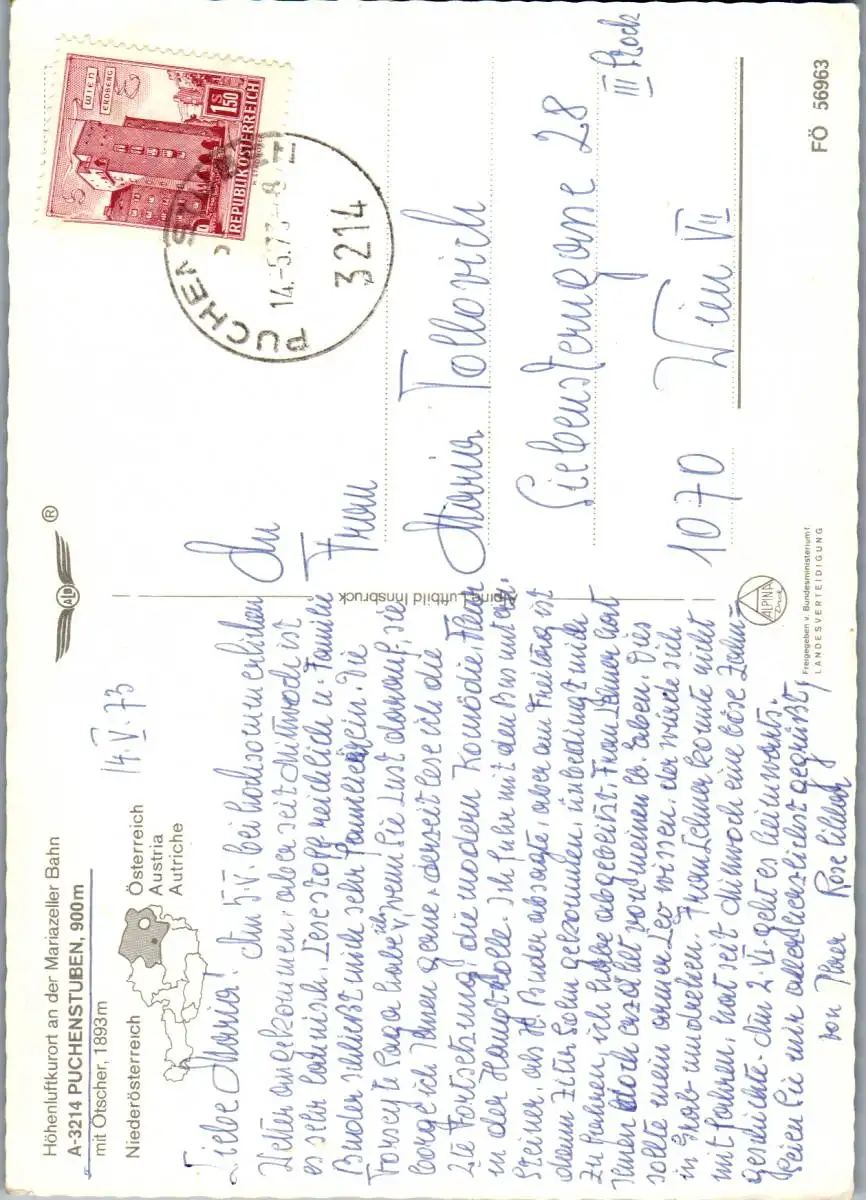 Höhenluftkurort an der Mariazeller Bahn
A-3214 PUCHENSTUBEN, 900 m
mit Ötscher, 1893 m
Niederösterreich
Österreich
Austria
Autriche
14.V.73
Liebe Maria! Am 5.V. bei hochsommerlichem
Wetter angekommen, aber seit Mittwoch ist
es sehr launisch. Lesestoff reichlich u. Familie
Binder schließt mich sehr familiär ein. Die
Forsyte Saga habe ich, wenn Sie Lust darauf, sie
borge ich Ihnen gerne, derzeit lese ich die
2te Fortsetzung, die modern Komödie, Fleur
in der Hauptrolle. Ich fuhr mit dem Bus mit
Steiner, als H. Binder absagte, aber am Freitag ist
dann ihr Sohn gekommen, unbedingt wieder
zu fahren, ich habe abgebeizt. Frau Lehner hat
Ihnen doch erzählt von meinen lb. Erben. Dies
sollte mein armer Leo wissen, der würde sich
im Grab umdrehen. Frau Lehner konnte nicht
mitfahren, hat seit Mittwoch eine böse Zahn-
geschichte. Am 2.VI. geht es heimwärts.
Seien Sie mir allerherzlichst gegrüßt,
von Ihrer Rose
ALB ®
Alpine Luftbild Innsbruck
ALPINA
Druck
Freigegeben v. Bundesministerium f.
LANDESVERTEIDIGUNG
WIEN
ERDBERG
S 1.50
REPUBLIK ÖSTERREICH
PUCHENSTUBEN
14.-5.73-8
3214
An
Frau
Maria Tollovich
Siebensterngasse 28
III Stock
1070 Wien VII
FÖ 56963